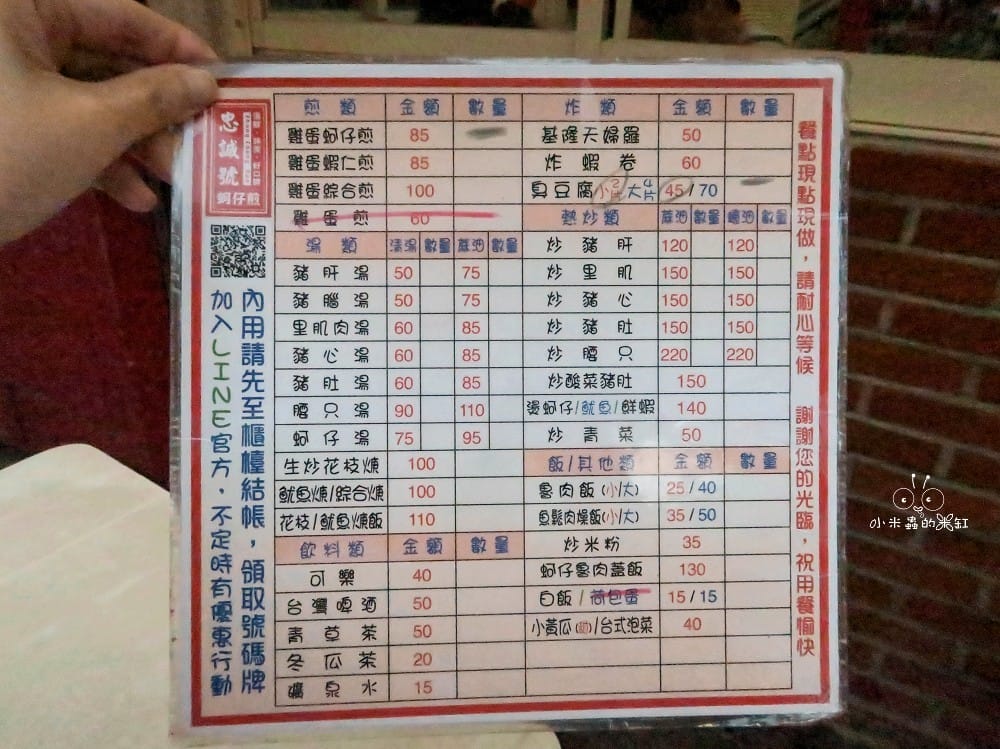 忠誠號
蚵仔煎
加入LINE官方，不定時有優惠行動
內用請先至櫃檯結帳，領取號碼牌
煎類 金額 數量
雞蛋蚵仔煎 85
雞蛋蝦仁煎 85
雞蛋綜合煎 100
雞蛋煎 60
湯類 清湯 數量 蔴油 數量
豬肝湯 50 75
豬腦湯 50 75
里肌肉湯 60 85
豬心湯 60 85
豬肚湯 60 85
腰只湯 90 110
蚵仔湯 75 95
生炒花枝焿 100
魷魚焿/綜合焿 100
花枝/魷魚焿飯 110
飲料類 金額 數量
可樂 40
台灣啤酒 50
青草茶 50
冬瓜茶 20
礦泉水 15
炸類 金額 數量
基隆天婦羅 50
炸蝦卷 60
臭豆腐 小2片 大4片 45/70
熱炒類 蔴油 數量 蠔油 數量
炒豬肝 120 120
炒里肌 150 150
炒豬心 150 150
炒豬肚 150 150
炒腰只 220 220
炒酸菜豬肚 150
燙蚵仔/魷魚/鮮蝦 140
炒青菜 50
飯/其他類 金額 數量
魯肉飯(小/大) 25/40
魚鬆肉燥飯(小/大) 35/50
炒米粉 35
蚵仔魯肉蓋飯 130
白飯/荷包蛋 15/15
小黃瓜/台式泡菜 40
餐點現點現做，請耐心等候 謝謝您的光臨，祝用餐愉快
小米蟲的米缸